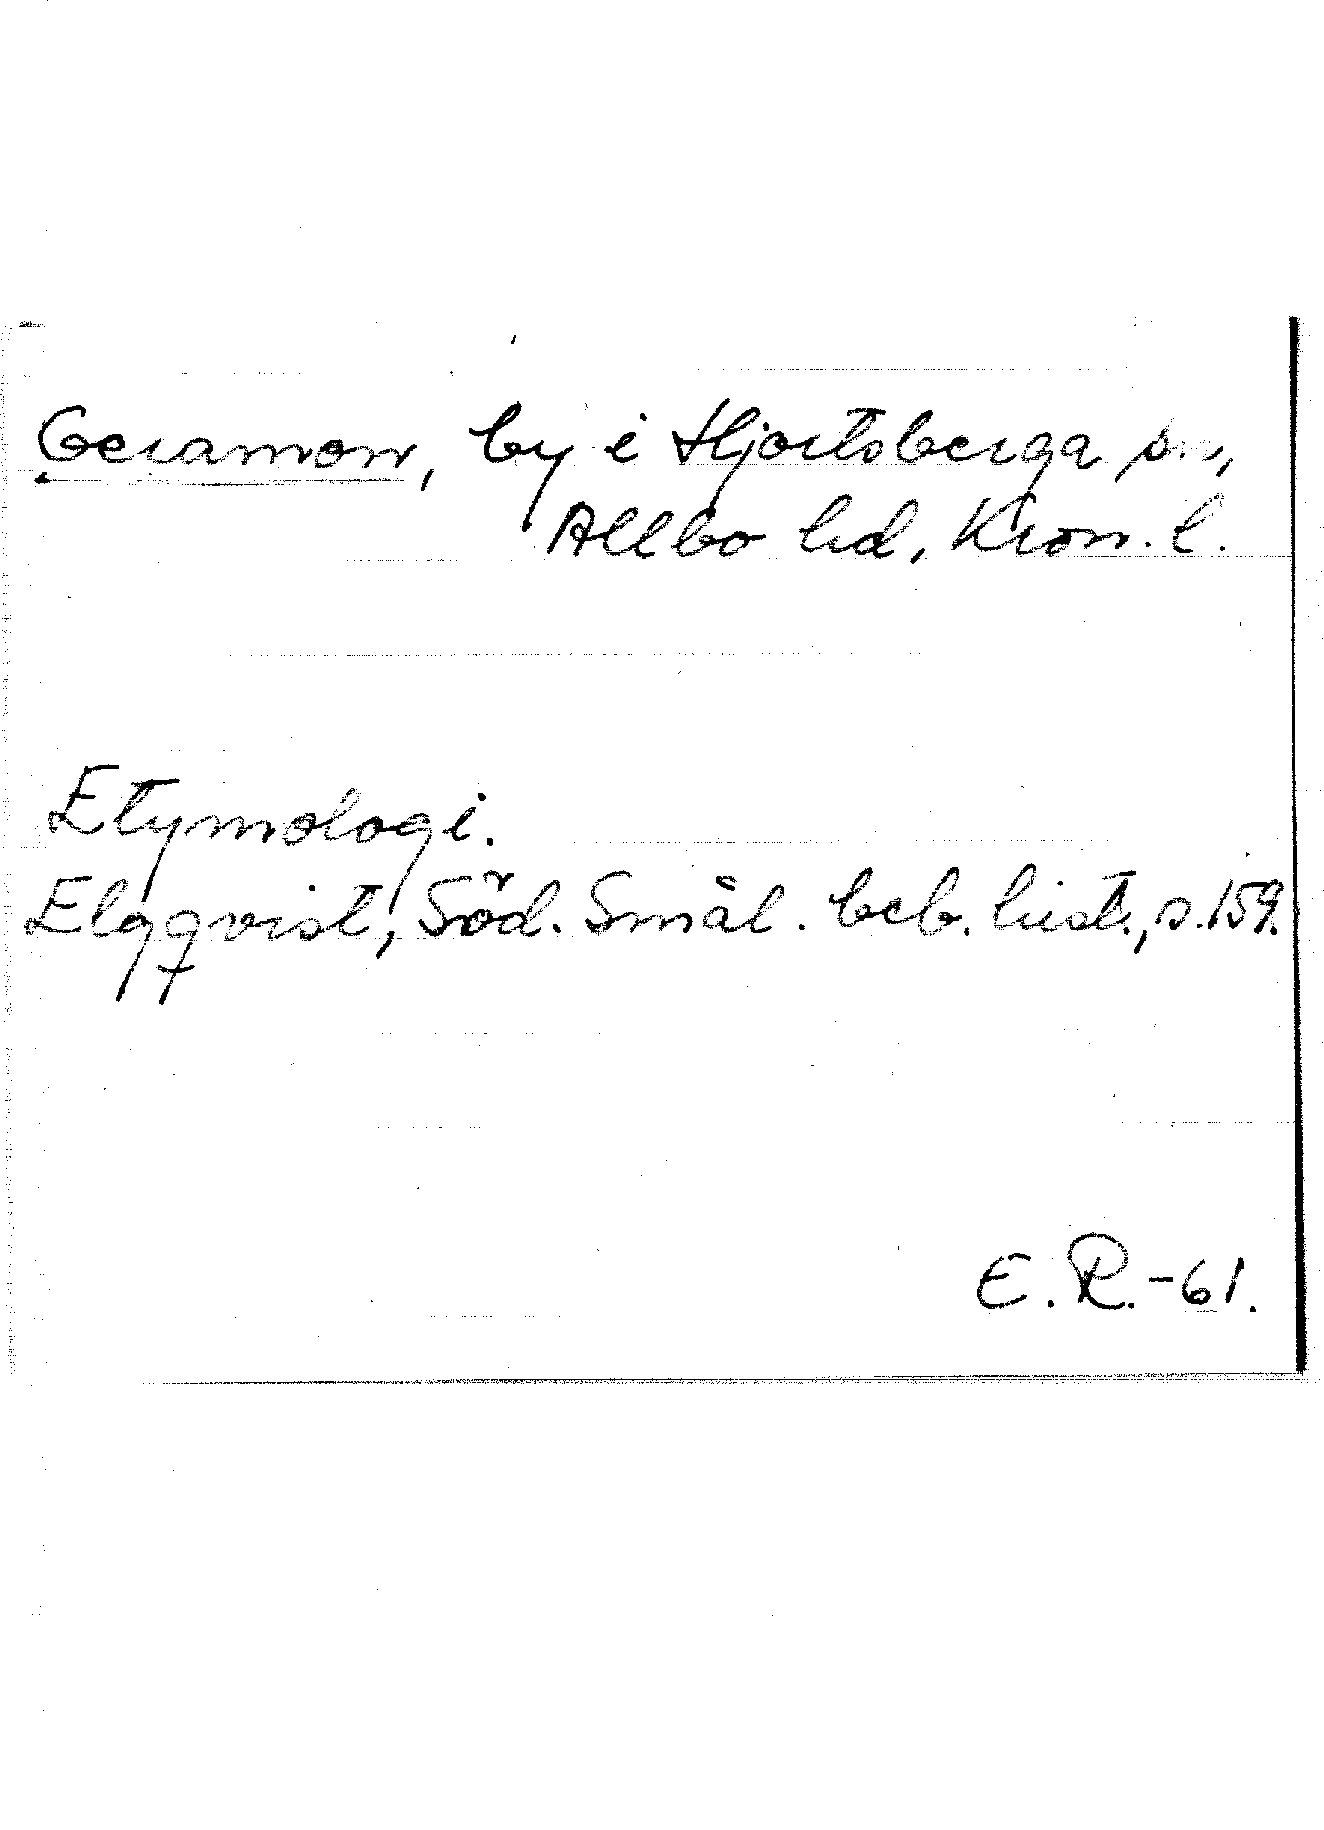 Geramon, by i Hjortsberga sn,
Allbo hd, Kron. l.
Etymologi.
Elgqvist, Söd. Smål. beb. hist., s. 159.
E. R. -61.